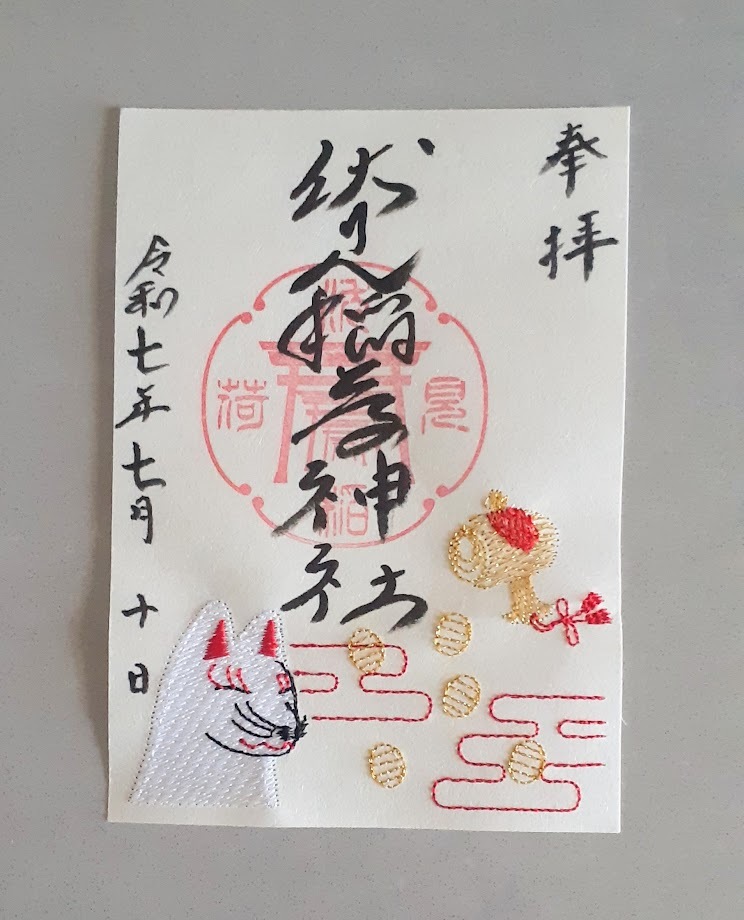 奉拝
見稲荷神社
令和七年七月十日
見
稲
荷